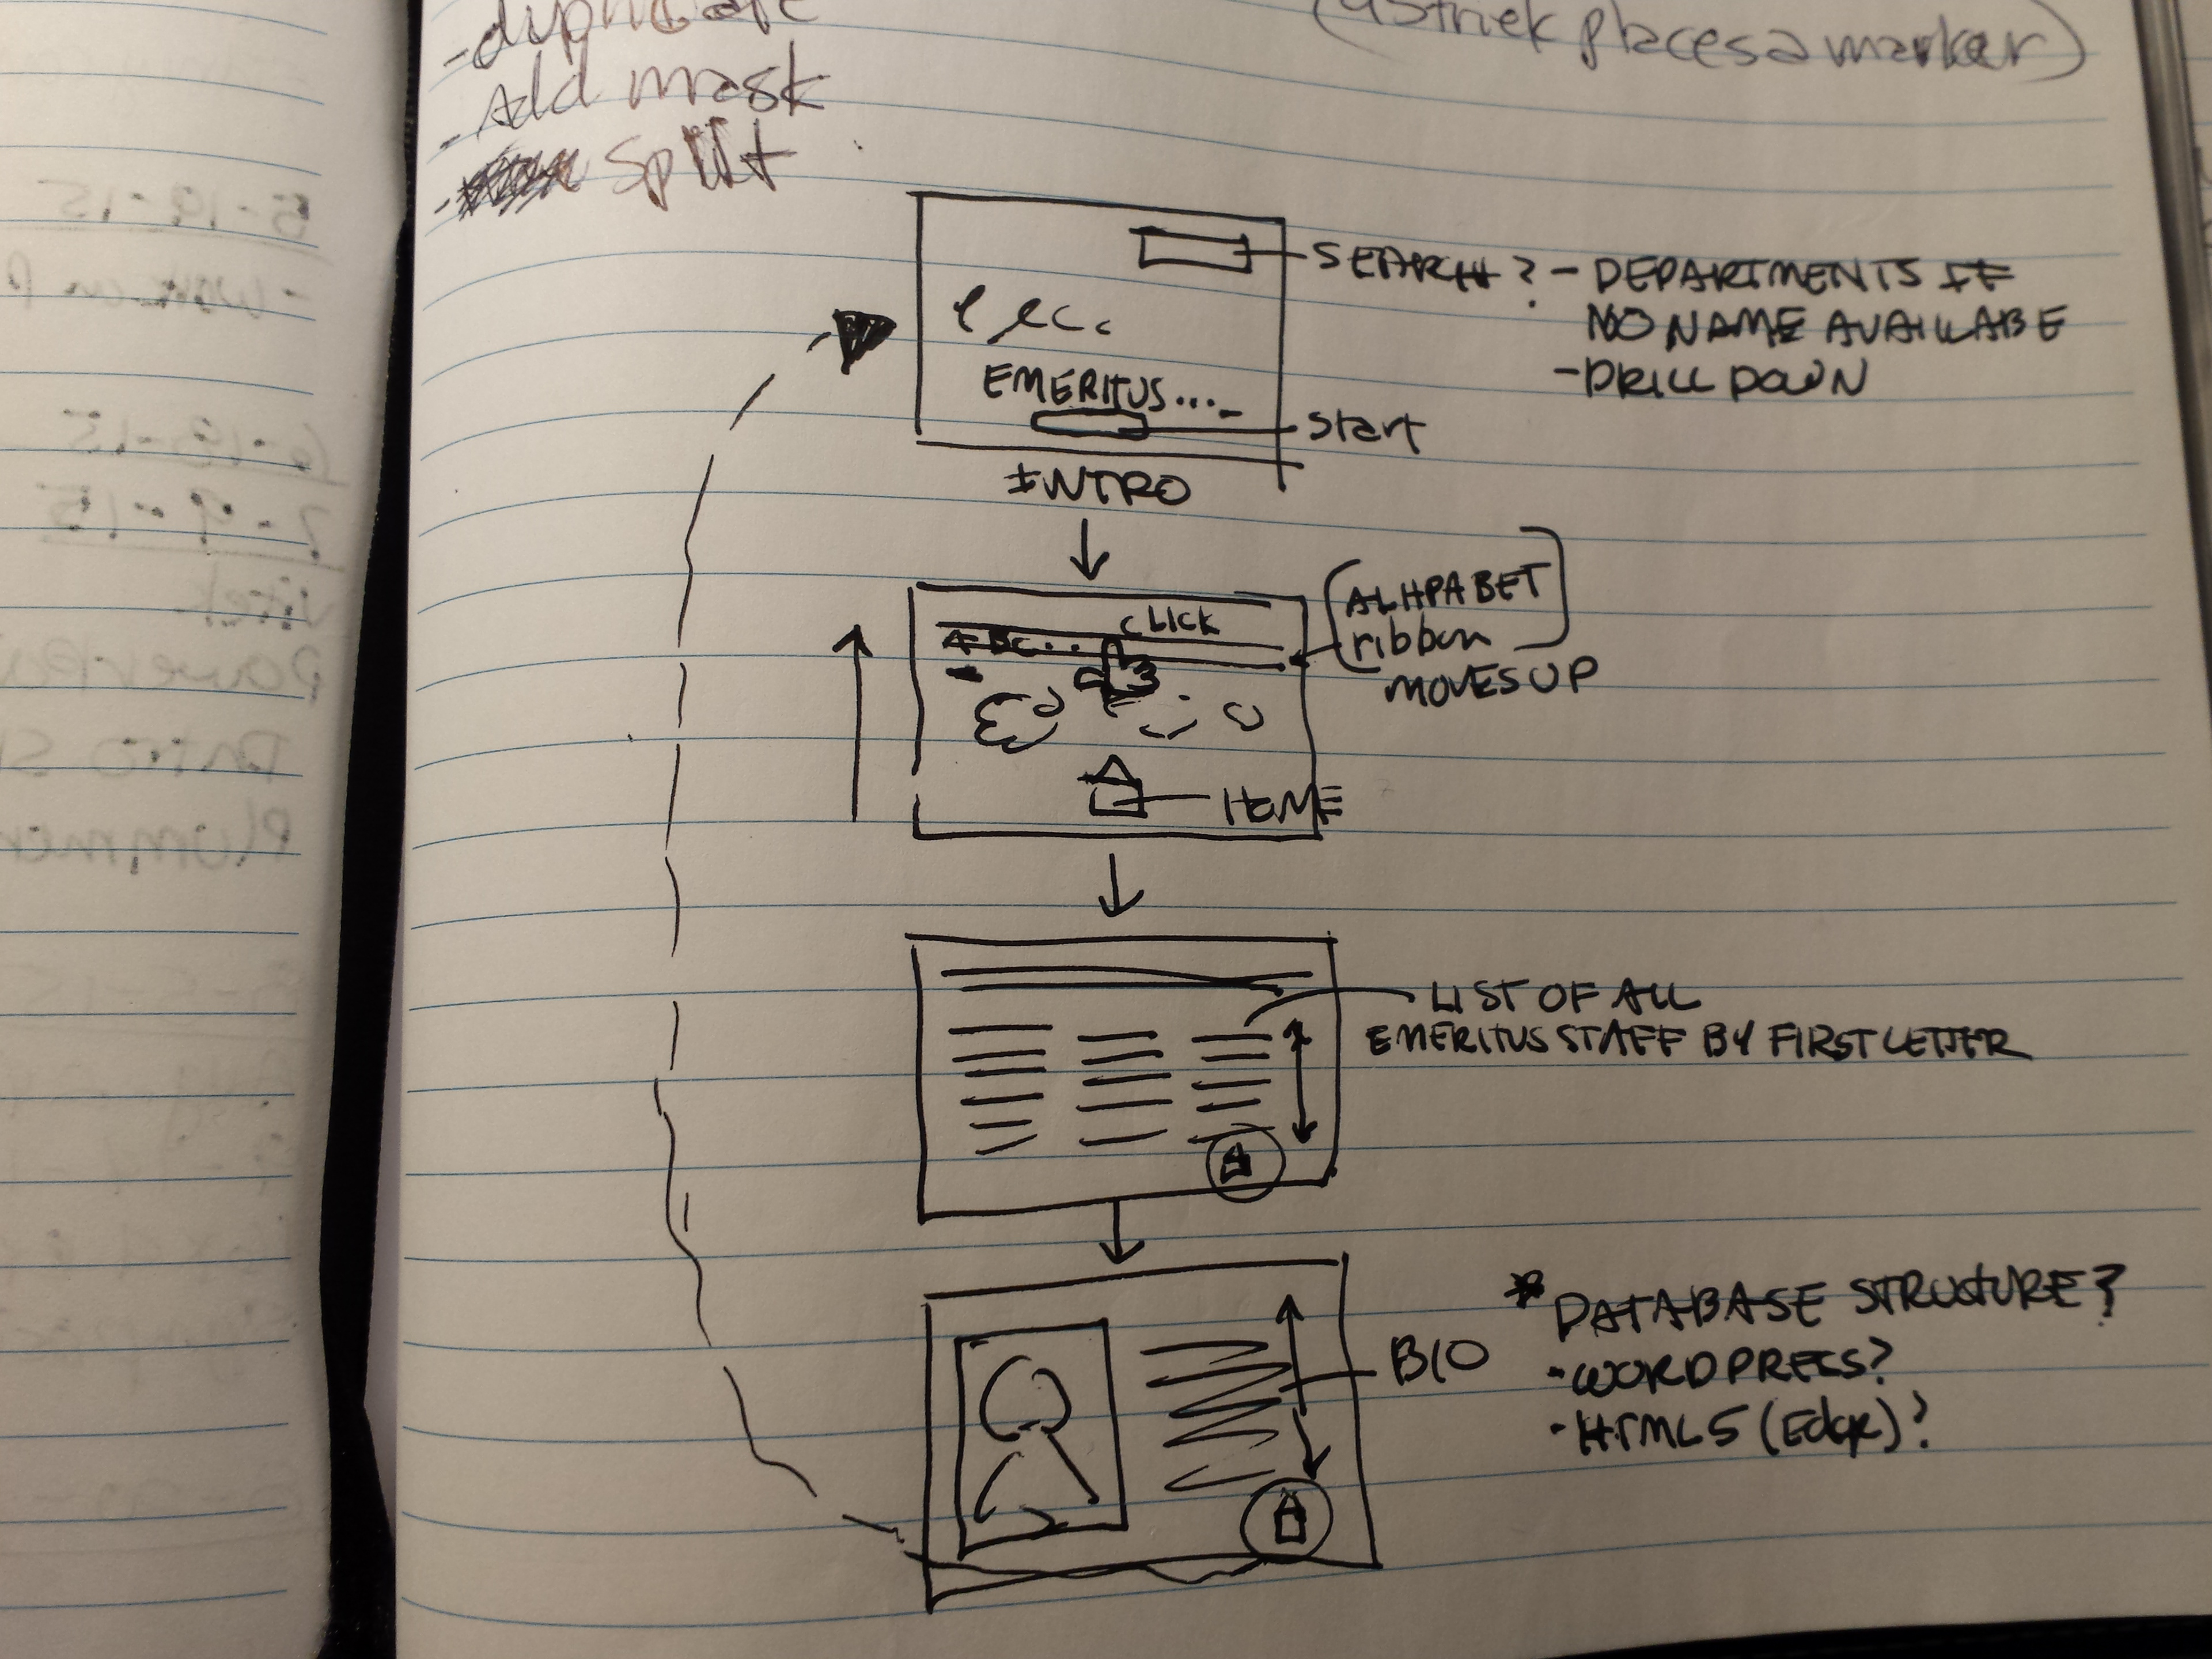 - duplicate
(astriek places a marker)
- Add mask
- split
SEARCH? - DEPARTMENTS IF
NO NAME AVAILABE
- DRILL DOWN
EMERITUS...
Start
INTRO
CLICK
ABC...
(ALHPABET
ribbon
MOVES UP
HOME
LIST OF ALL
EMERITUS STAFF BY FIRST LETTER
BIO
* DATABASE STRUCTURE?
- WORDPRESS?
- HTML5 (Edge)?